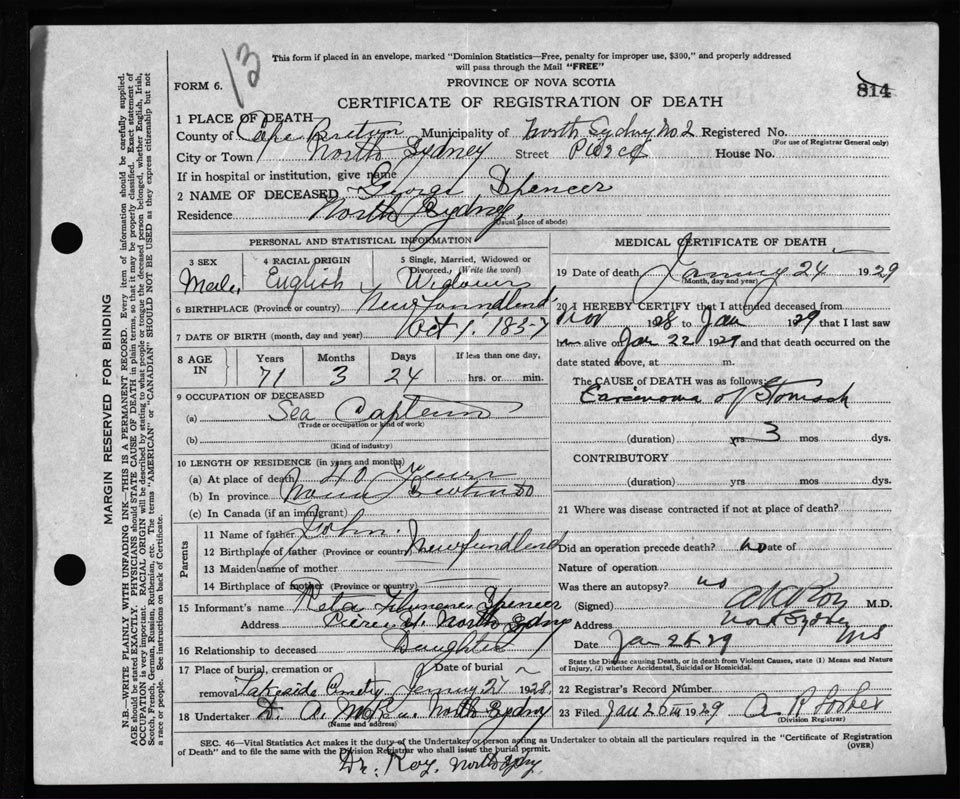 13
This form if placed in an envelope, marked "Dominion Statistics—Free, penalty for improper use, $300," and properly addressed
will pass through the Mail "FREE"
FORM 6.
PROVINCE OF NOVA SCOTIA
814
CERTIFICATE OF REGISTRATION OF DEATH
1 PLACE OF DEATH
County of Cape Breton Municipality of North Sydney No 2 Registered No.
(For use of Registrar General only)
City or Town North Sydney Street Pierce House No.
If in hospital or institution, give name
2 NAME OF DECEASED George Spencer
Residence North Sydney.
(Usual place of abode)
PERSONAL AND STATISTICAL INFORMATION
3 SEX Male
4 RACIAL ORIGIN English
5 Single, Married, Widowed or Divorced. (Write the word) Widower
6 BIRTHPLACE (Province or country) Newfoundland
7 DATE OF BIRTH (month, day and year) Oct 1, 1857
8 AGE IN Years 71 Months 3 Days 24 If less than one day, hrs. or min.
9 OCCUPATION OF DECEASED
(a) Sea Captain
(Trade or occupation or kind of work)
(b)
(Kind of industry)
10 LENGTH OF RESIDENCE (in years and months)
(a) At place of death 40 Years
(b) In province Nova Scotia do
(c) In Canada (if an immigrant)
Parents
11 Name of father John
12 Birthplace of father (Province or country) Newfundlend
13 Maiden name of mother
14 Birthplace of mother (Province or country)
15 Informant's name Spencer
Address Pierce St. North Sydney
16 Relationship to deceased Daughter
17 Place of burial, cremation or removal Lakeside Cemetry Date of burial 27 1928.
18 Undertaker North Sydney
(Name and address)
MEDICAL CERTIFICATE OF DEATH
19 Date of death 24 1929
(Month, day and year)
20 I HEREBY CERTIFY that I attended deceased from
Nov 1928 to Jan 1929 that I last saw
h alive on Jan 22 1929 and that death occurred on the
date stated above, at m.
The CAUSE of DEATH was as follows:
Carcinoma of Stomach
(duration) yrs 3 mos dys.
CONTRIBUTORY
(duration) yrs mos dys.
21 Where was disease contracted if not at place of death?
Did an operation precede death? no Date of
Nature of operation
Was there an autopsy? no
(Signed) Roy M.D.
Address North Sydney
NS
Date Jan 29
State the Disease causing Death, or in death from Violent Causes, state (1) Means and Nature
of Injury, (2) whether Accidental, Suicidal or Homicidal.
22 Registrar's Record Number
23 Filed Jan 26 1929 A R
(Division Registrar)
SEC. 46—Vital Statistics Act makes it the duty of the Undertaker or person acting as Undertaker to obtain all the particulars required in the "Certificate of Registration
of Death" and to file the same with the Division Registrar who shall issue the burial permit.
(OVER)
Dr. Roy. North Sydney.
MARGIN RESERVED FOR BINDING
N.B.—WRITE PLAINLY WITH UNFADING INK—THIS IS A PERMANENT RECORD. Every item of information should be carefully supplied.
AGE should be stated EXACTLY. PHYSICIANS should STATE CAUSE OF DEATH in plain terms, so that it may be properly classified. Exact statement of
OCCUPATION is very important. RACIAL ORIGIN will be described by stating to what people or tongue the deceased person belonged, whether English, Irish,
Scotch, French, German, Russian, Ruthenian, etc. The terms "AMERICAN" or "CANADIAN" SHOULD NOT BE USED as they express citizenship but not
a race or people. See instructions on back of Certificate.